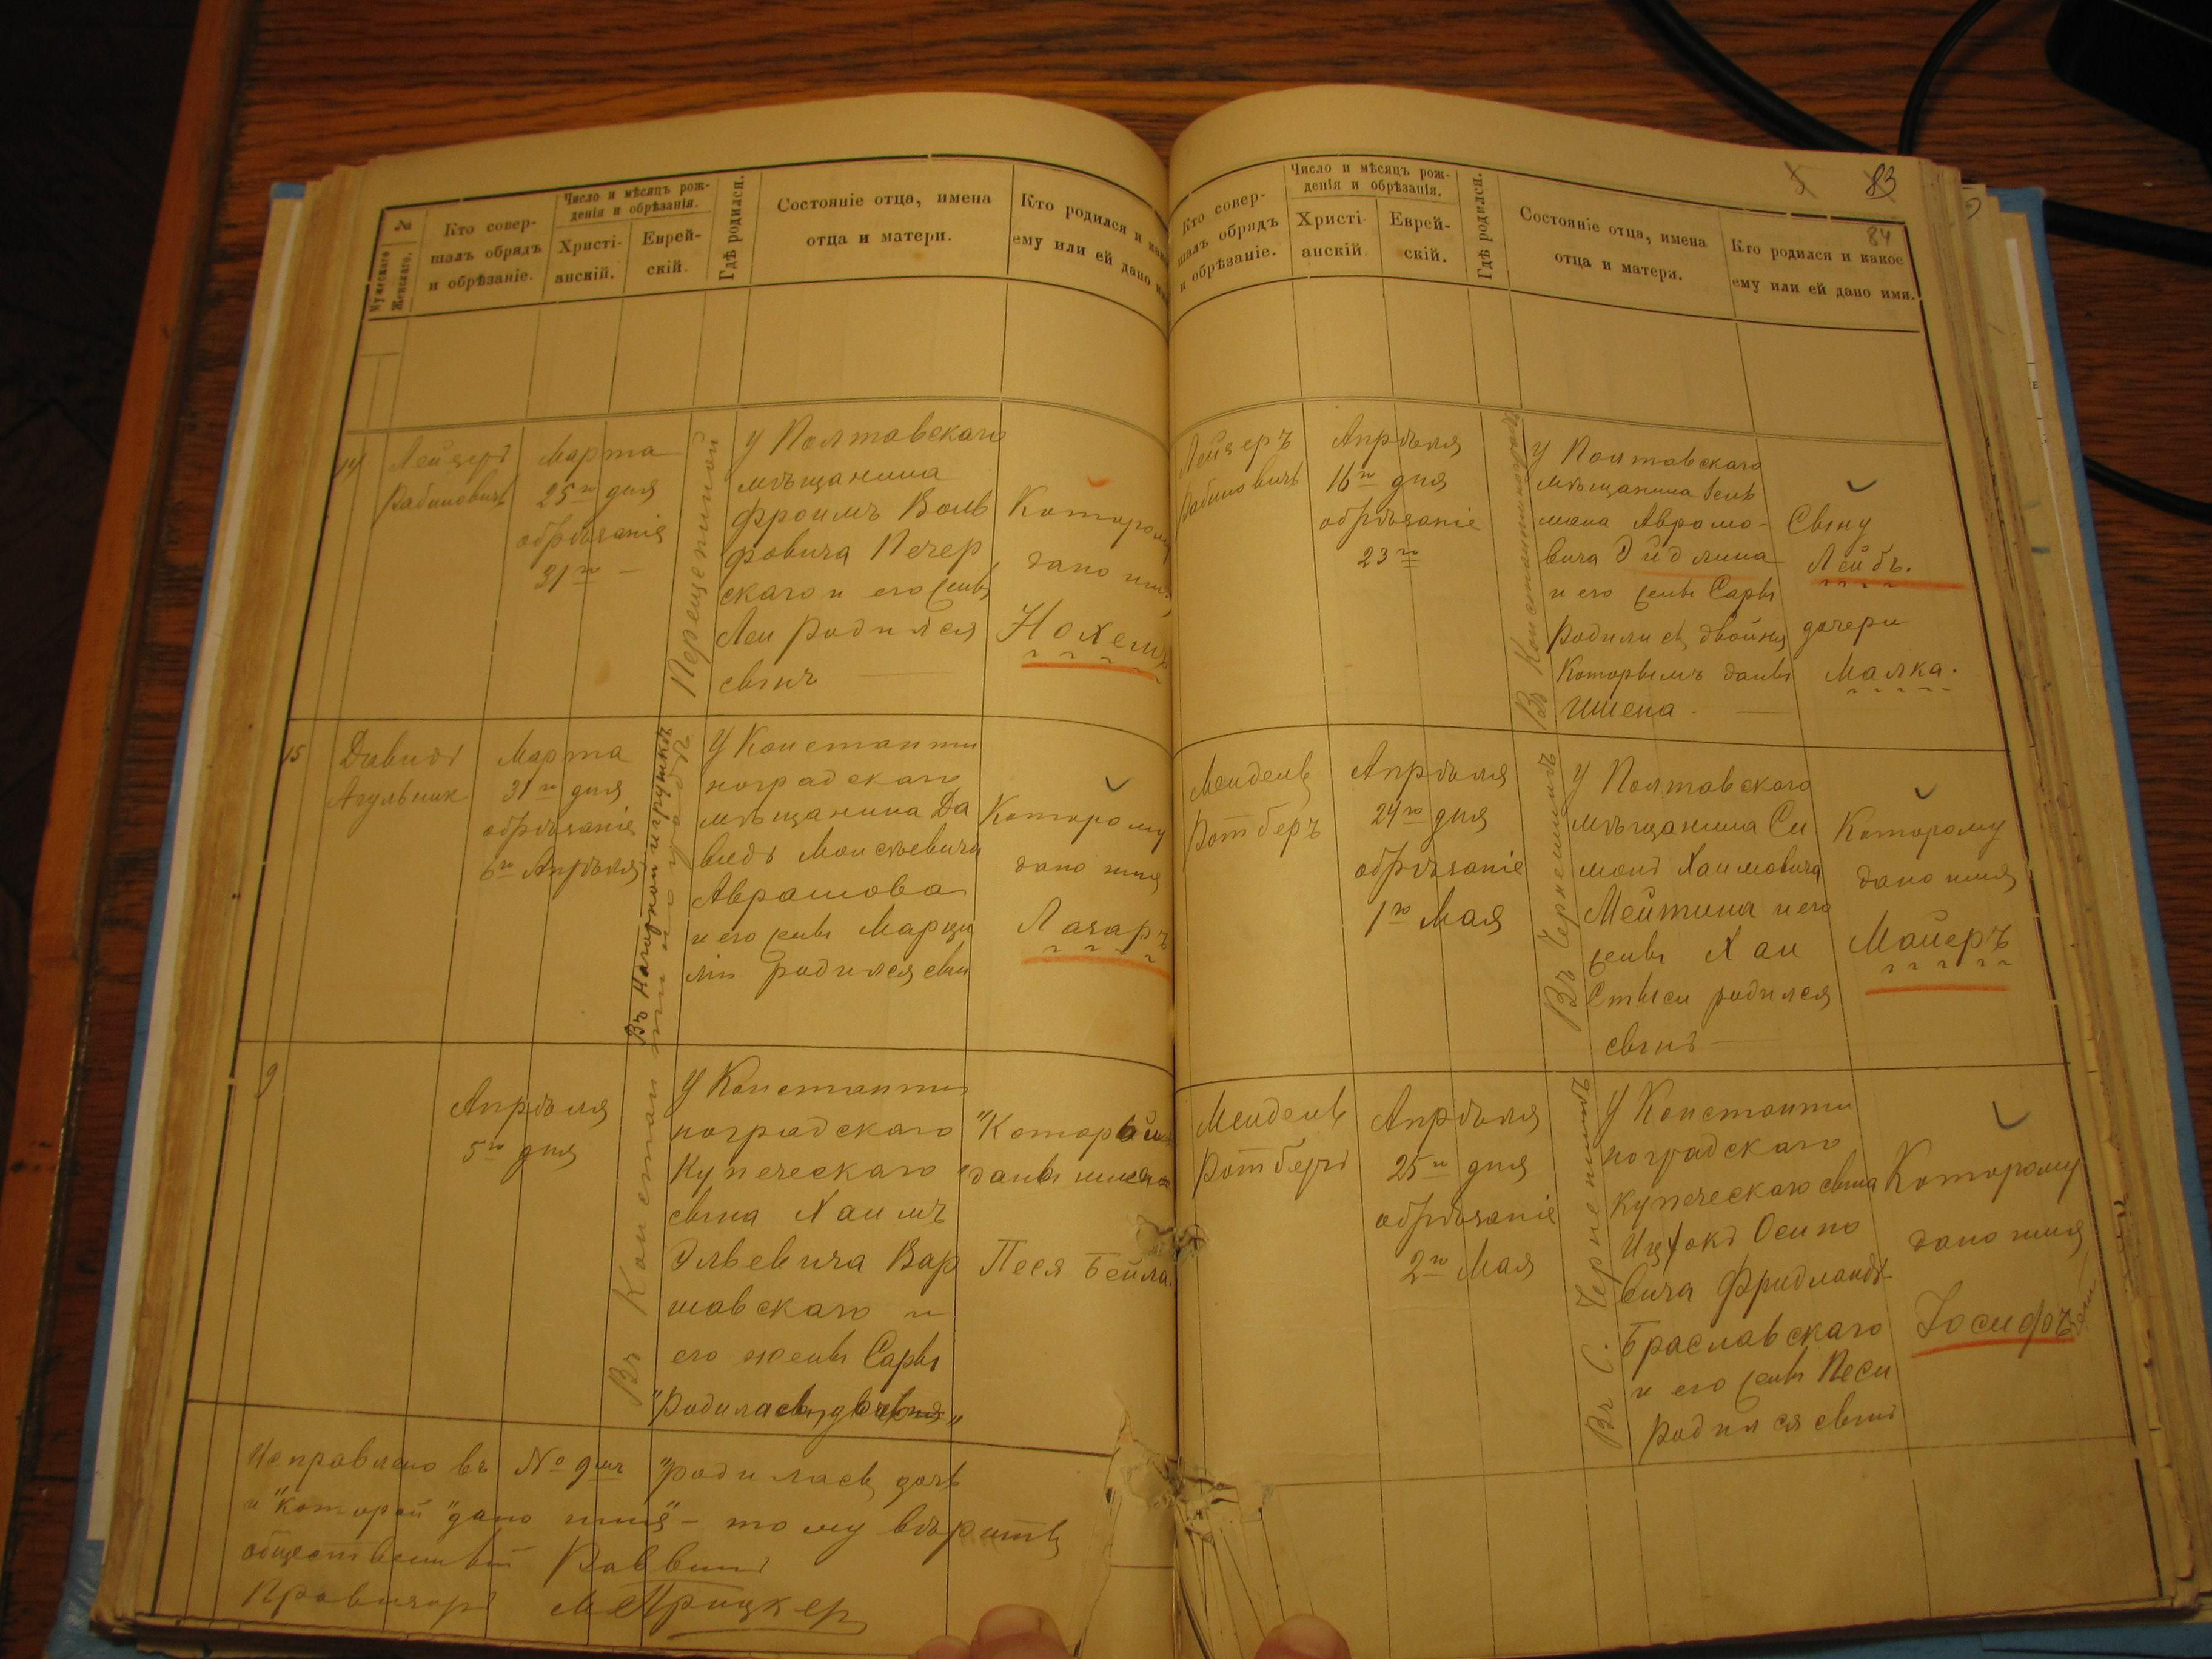 №
Мужескаго
Женскаго.
Кто совер-
шалъ обрядъ
и обрѣзаніе.
Число и мѣсяцъ рож-
денія и обрѣзанія.
Христі-
анскій.
Еврей-
скій.
Гдѣ родился.
Состояніе отца, имена
отца и матери.
Кто родился и
ему или ей дано
14
Лейзеръ
Рабиновичъ
Марта
25го дня
обрѣзанія
31го —
Перещепиной
У Полтавскаго
мѣщанина
Фроимъ Воль
фовича Печер
скаго и его жены
Леи родился
сынъ
Которому
дано имя
15
Давидъ
Агульник
Марта
31го дня
обрѣзаніе
6го Апрѣля
Въ Нагорной
У Константи
ноградскаго
мѣщанина Да
видъ Моисѣевича
Аврамова
и его жены
родился сын
Которому
дано имя
Лазаръ
9
Апрѣля
5го дня
Въ Константиноградѣ
У Константи
ноградскаго
Купеческаго
сына Хаимъ
Эльевича Вар
шавскаго и
его жены Сары
"Родилась
"Которой
"даны имена
Песя Бейла.
Исправлено въ № 9мъ "родилась дочь
и "которой "дано имя" – тому вѣрить
общественный Раввинъ
Провизоръ
83
84
Кто совер-
шалъ обрядъ
и обрѣзаніе.
Число и мѣсяцъ рож-
денія и обрѣзанія.
Христі-
анскій
Еврей-
скій.
Гдѣ родился.
Состояніе отца, имена
отца и матери.
Кто родился и какое
ему или ей дано имя.
Лейзеръ
Рабиновичъ
Апрѣля
16го дня
обрѣзаніе
23го
Въ Константиноградѣ
У Полтавскаго
мѣщанина Зель
мана Аврамо-
вича Эйдлина
и его жены Сары
родились двойня
Которымъ даны
имена —
Сыну
Лейбъ.
дочери
Малка.
Мендель
Ротберъ
Апрѣля
24го дня
обрѣзаніе
1го Мая
Въ
У Полтавскаго
мѣщанина Си
монъ Хаимовича
Мейтина и его
жены Хаи
родился
сынъ
Которому
дано имя
Маиеръ
Мендель
Ротберъ
Апрѣля
25го дня
обрѣзаніе
2го Мая
Въ С.
У Константи
ноградскаго
купеческаго сына
Ицхокъ Осипо
вича Фридландъ-
Браславскаго
и его жены Песи
родился сынъ
Которому
дано имя
Іосифъ